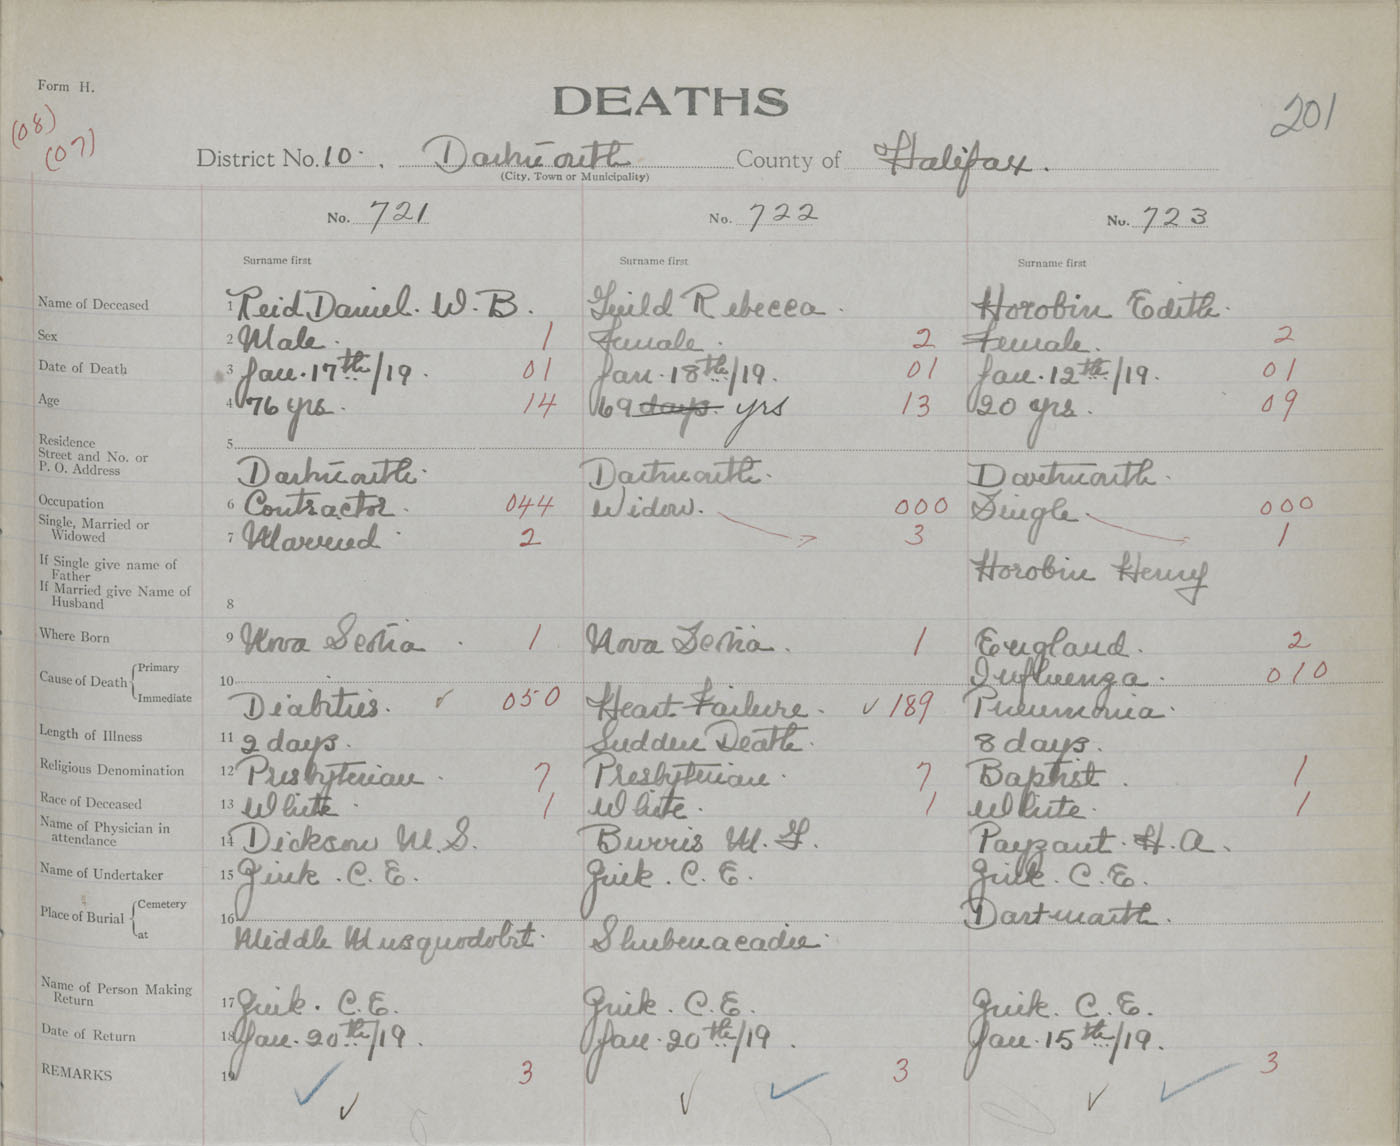 Form H.
DEATHS
201
(08)
(07)
District No. 10. Dartmouth County of Halifax.
(City, Town or Municipality)
No. 721 No. 722 No. 723
Surname first Surname first Surname first
Name of Deceased 1 Reid Daniel. W. B. Guild Rebecca. Horobin Edith.
Sex 2 Male. 1 Female. 2 Female. 2
Date of Death 3 Jan. 17th/19. 01 Jan. 18th/19. 01 Jan. 12th/19. 01
Age 4 76 yrs. 14 69 days. yrs 13 20 yrs. 09
Residence
Street and No. or
P. O. Address 5 Dartmouth. Dartmouth. Dartmouth.
Occupation 6 Contractor. 044 Widow. 000 Single 000
Single, Married or
Widowed 7 Married. 2 3 1
If Single give name of
Father
If Married give Name of
Husband 8 Horobin Henry
Where Born 9 Nova Scotia. 1 Nova Scotia. 1 England. 2
Cause of Death Primary 10 Influenza. 010
Immediate Diabities. 050 Heart Failure. 189 Pneumonia.
Length of Illness 11 2 days. Sudden Death. 8 days.
Religious Denomination 12 Presbyterian. 7 Presbyterian. 7 Baptist. 1
Race of Deceased 13 White. 1 White. 1 White. 1
Name of Physician in
attendance 14 Dickson M. S. Burris M. G. Payzant. H. A.
Name of Undertaker 15 C. E. C. E. C. E.
Place of Burial Cemetery 16 Dartmouth.
at Middle Musquodobit. Shubenacadie.
Name of Person Making
Return 17 C. E. C. E. C. E.
Date of Return 18 Jan. 20th/19. Jan. 20th/19. Jan. 15th/19.
REMARKS 19 3 3 3